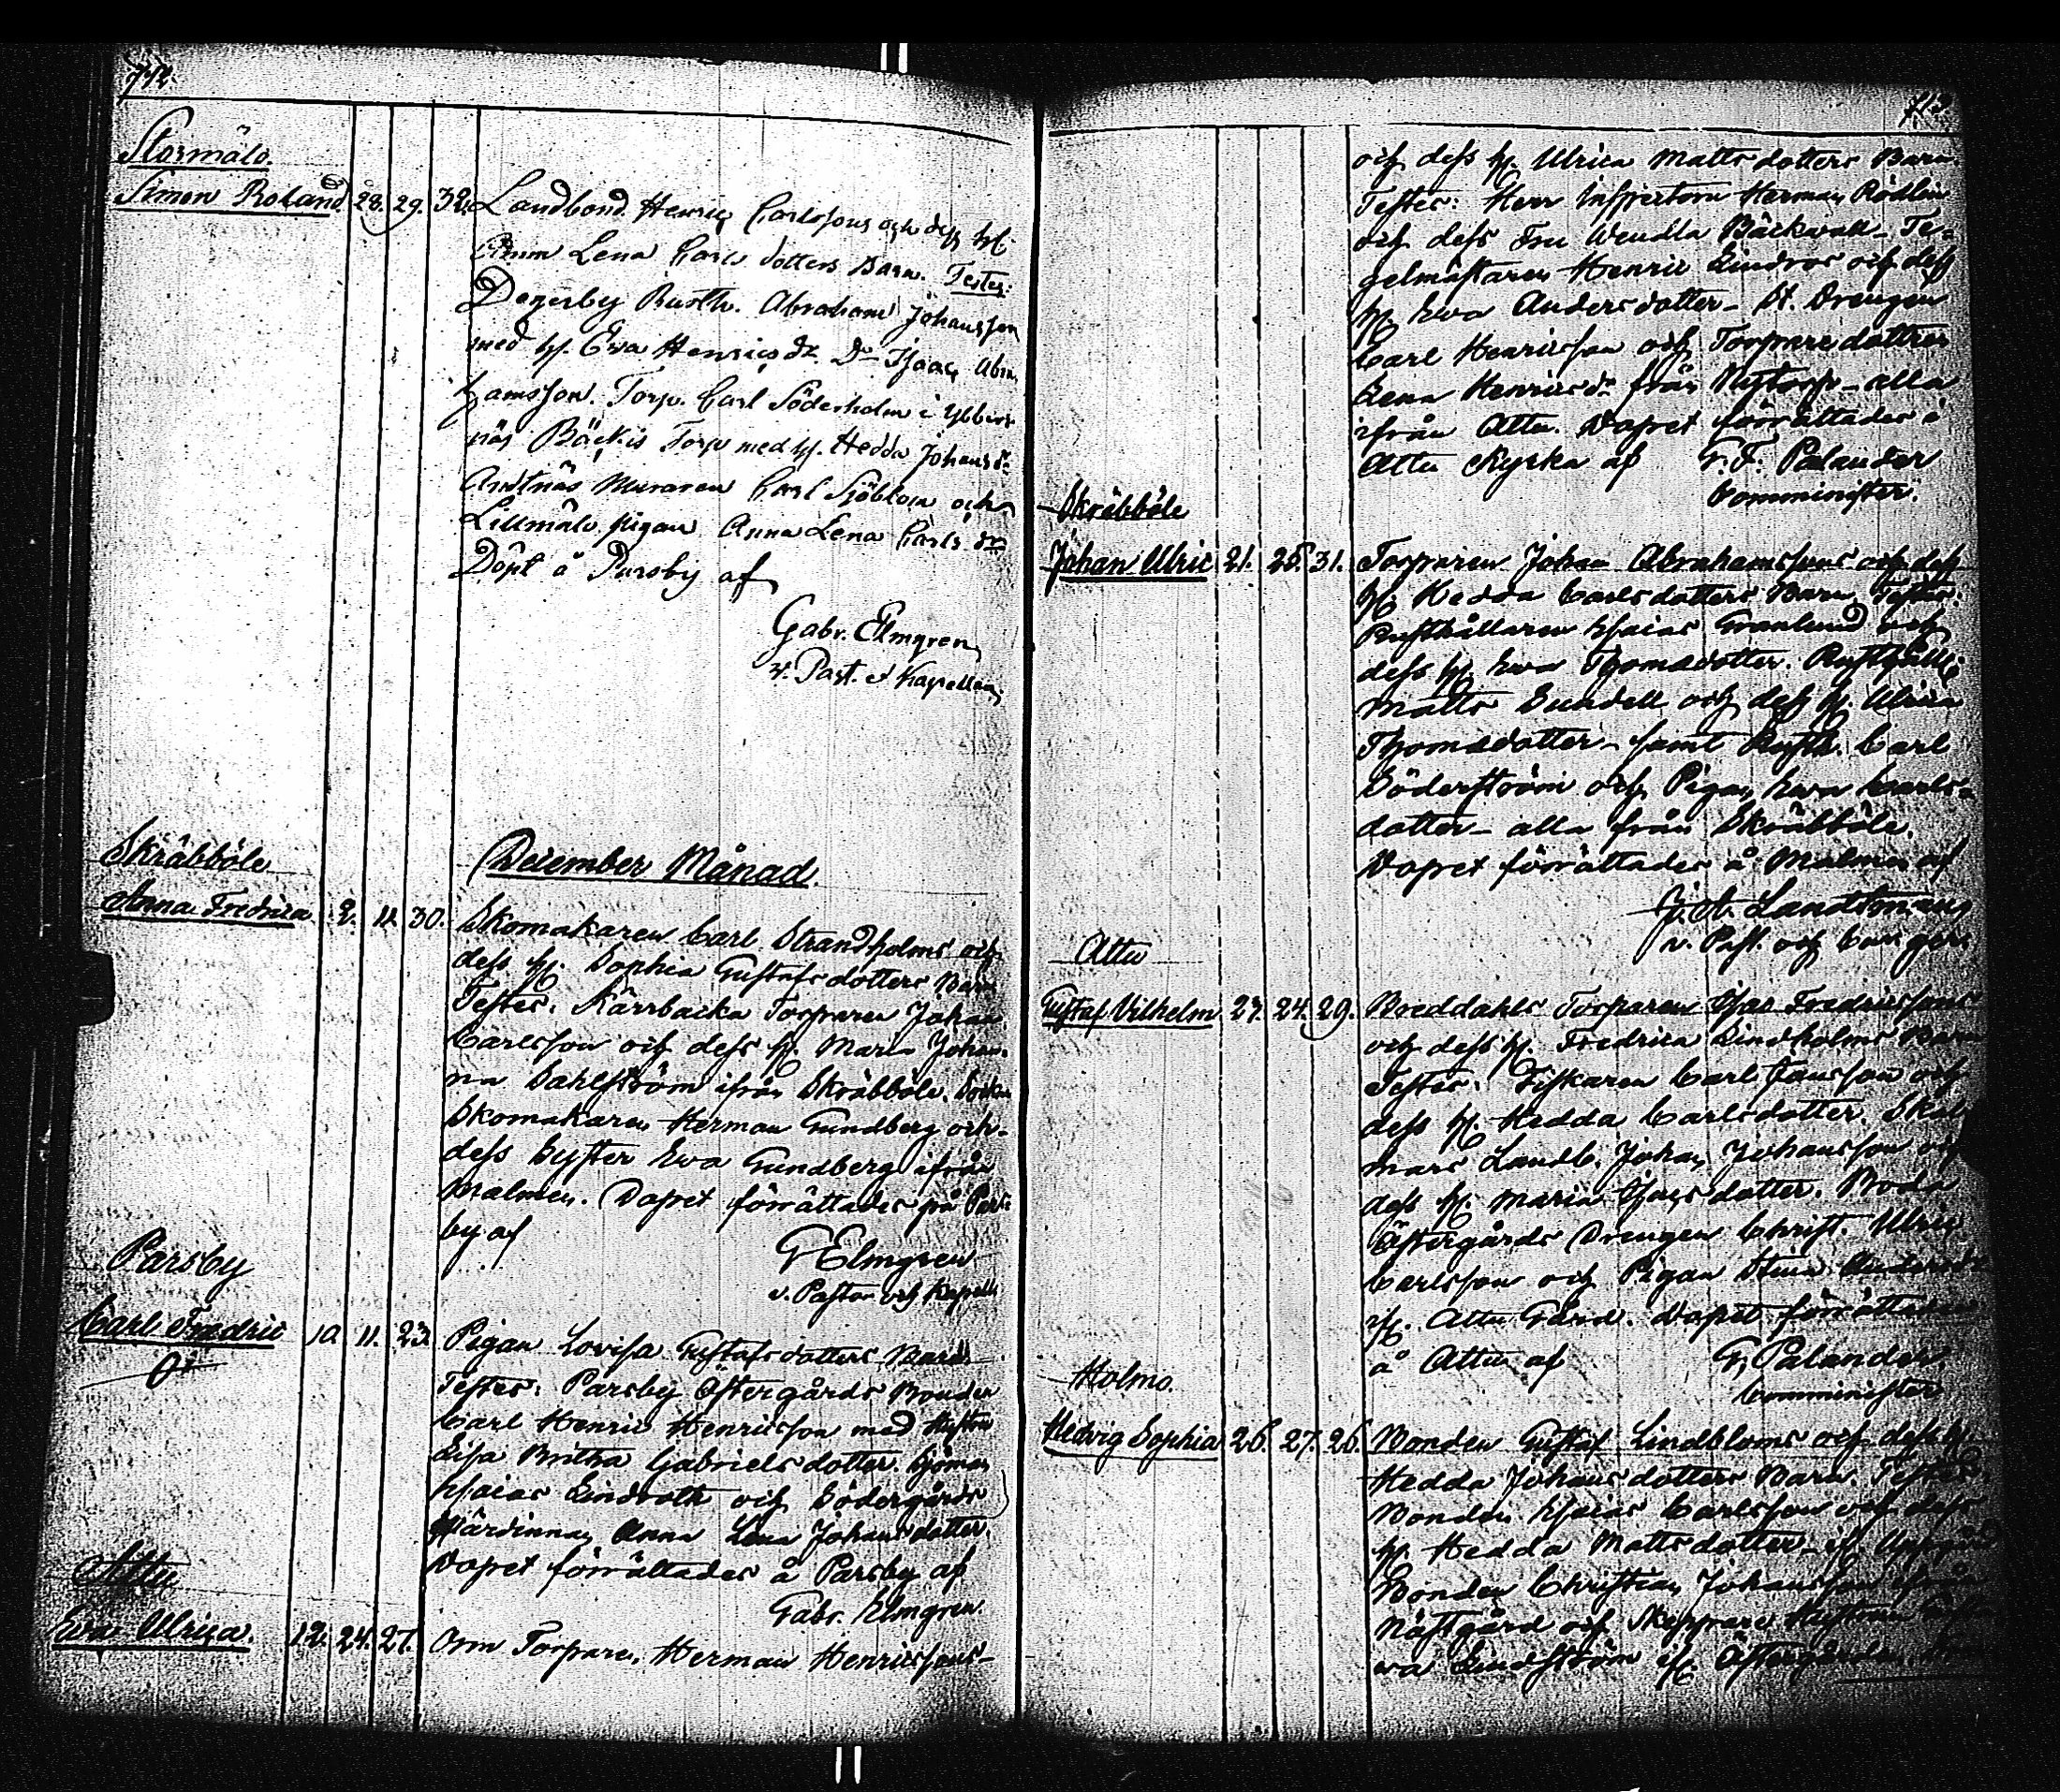 712.
Stormälö.
Simon Roland 28. 29. 32. Landbond. Henric Carlssons och dess H.
Anna Lena Carls dotters Barn. Testes:
Degerby Rusth. Abraham Johansson
med H. Eva Henrics dr Dr Isaac Abra-
hamsson. Torp. Carl Söderholm i
näs Bäckis Torp med H. Hedda Johans dr
Muraren Carl Sjöblom och
Lillmälö pigan Anna Lena Carls dr
Döpt å Parsby af
Gabr. Elmgren
v. Past. et Kapellan
December Månad.
Skräbböle
Anna Fredrica 2. 11. 30. Skomakaren Carl Strandholms och
dess H. Sophia Gustafs dotters Barn
Testes: Kärrbacka Torparen Johan
Carlsson och dess H. Maria Johan-
na Dahlström ifrån Skräbböle. Sockn
Skomakaren Herman Gundberg och
dess Syster Ewa Gundberg ifrån
Malmen. Dopet förrättades på Pars-
by af
G Elmgren
v. Pastor och Kapell
Parsby
Carl Fredric 10. 11. 23. Pigan Lovisa Gustafs dotters Barn
Testes: Parsby Östergårds Bonden
Carl Henric Henricsson med Hustru
Lisa Britha Gabriels dotter. Sjöman
Esaias Lindroth och Södergårds
Värdinnan Anna Lena Johans dotter.
Dopet förrättades å Parsby af
Gabr. Elmgren.
Attu
Ewa Ulrica. 12. 24. 27. Torparen Herman Henricssons
713
och dess H. Ulrica Matts dotters Barn
Testes: Herr Inspectorn Herman Rödlin
och dess Fru Wendla Bäckwall - Te-
gelmästaren Henric Lindros och dess
H. Ewa Anders dotter - St. Drengen
Carl Henricsson och Torpare dottren
Lena Henrics dr från Nytorp - alla
ifrån Attu. Dopet förrättades i
Attu Kyrka af G. F. Palander
Comminister.
Skräbböle
Johan Ulric 21. 25. 31. Torparen Johan Abrahamssons och dess
H. Hedda Carls dotters Barn Testes:
Rusthållaren Esaias Granlund och
dess H. Ewa Thomsdotter. Rusthåll:
Matts Sundell och dess H. Ulrica
Thomsdotter - samt Rusth. Carl
Söderström och Pigan Ewa Carls-
dotter - alla från Skräbböle.
Dopet förrättades å Malmen af
J. A. Landtman
v. Past. och
Attu
Gustaf Vilhelm 23. 24. 29. Breddahls Torparen Isac Fredricssons
och dess H. Fredrica Lindholms Barn
Testes: Fiskaren Carl Jansson och
dess H. Hedda Carls dotter. Skal-
mars Landb. Johan Johansson och
dess H. Maria Isacs dotter. Boda
Östergårds Drengen Christ. Ulric
Carlsson och Pigan Stina Anders dr
if. Attu Gård. Dopet förrättades
å Attu af G. Palander
Comminister
Holmo.
Hedvig Sophia 26. 27. 26. Bonden Gustaf Lindbloms och dess H.
Hedda Johans dotters Barn. Testes.
Bonden Esaias Carlsson och dess
H. Hedda Matts dotter - if. Uppgård
Bonden Christian Johansson ifrån
Nästgård och Skeppare Hustrun
Lindström if. Östergården.